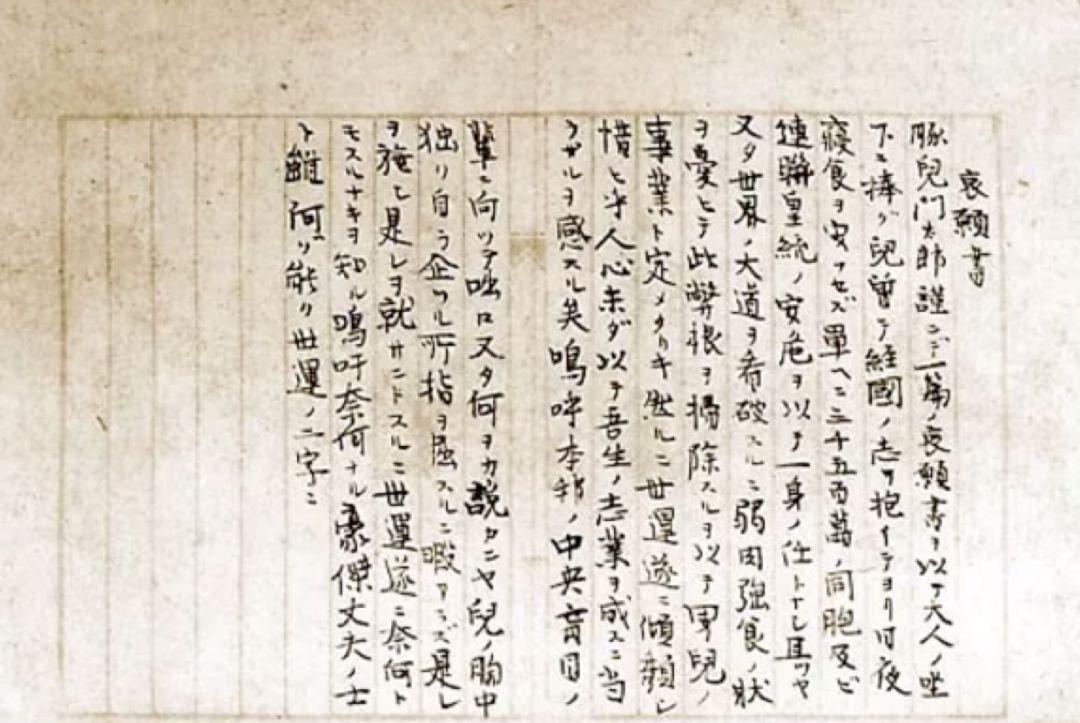 哀願書
豚児門太郎謹ンデ一篇ノ哀願書ヲ以テ大人ノ坐
下ニ捧グ児曽テ経國ノ志ヲ抱イテヨリ日夜
寝食ヲ安ンゼズ単ヘニ三千五百萬ノ同胞及ビ
連聯皇統ノ安危ヲ以テ一身ノ任トナシ且ツヤ
又タ世界ノ大道ヲ看破スルニ弱肉強食ノ状
ヲ憂ヒテ此弊根ヲ掃除スルヲ以テ男児ノ
事業ト定メタリキ然ルニ世運遂ニ傾頽シ
惜ヒ乎人心未ダ以テ吾生ノ志業ヲ成スニ当
ラザルヲ感スル矣嗚呼本邦ノ中央盲目ノ
輩ニ向ツテ咄ロ又タ何ヲカ説カンヤ児ノ胸中
独リ自ラ企ツル所指ヲ屈スルニ暇アラズ是レ
ヲ施シ是レヲ就サントスルニ世運遂ニ奈何ト
モスルナキヲ知ル嗚呼奈何ナル豪傑丈夫ノ士
ト雖何ソ能ク世運ノ二字ニ